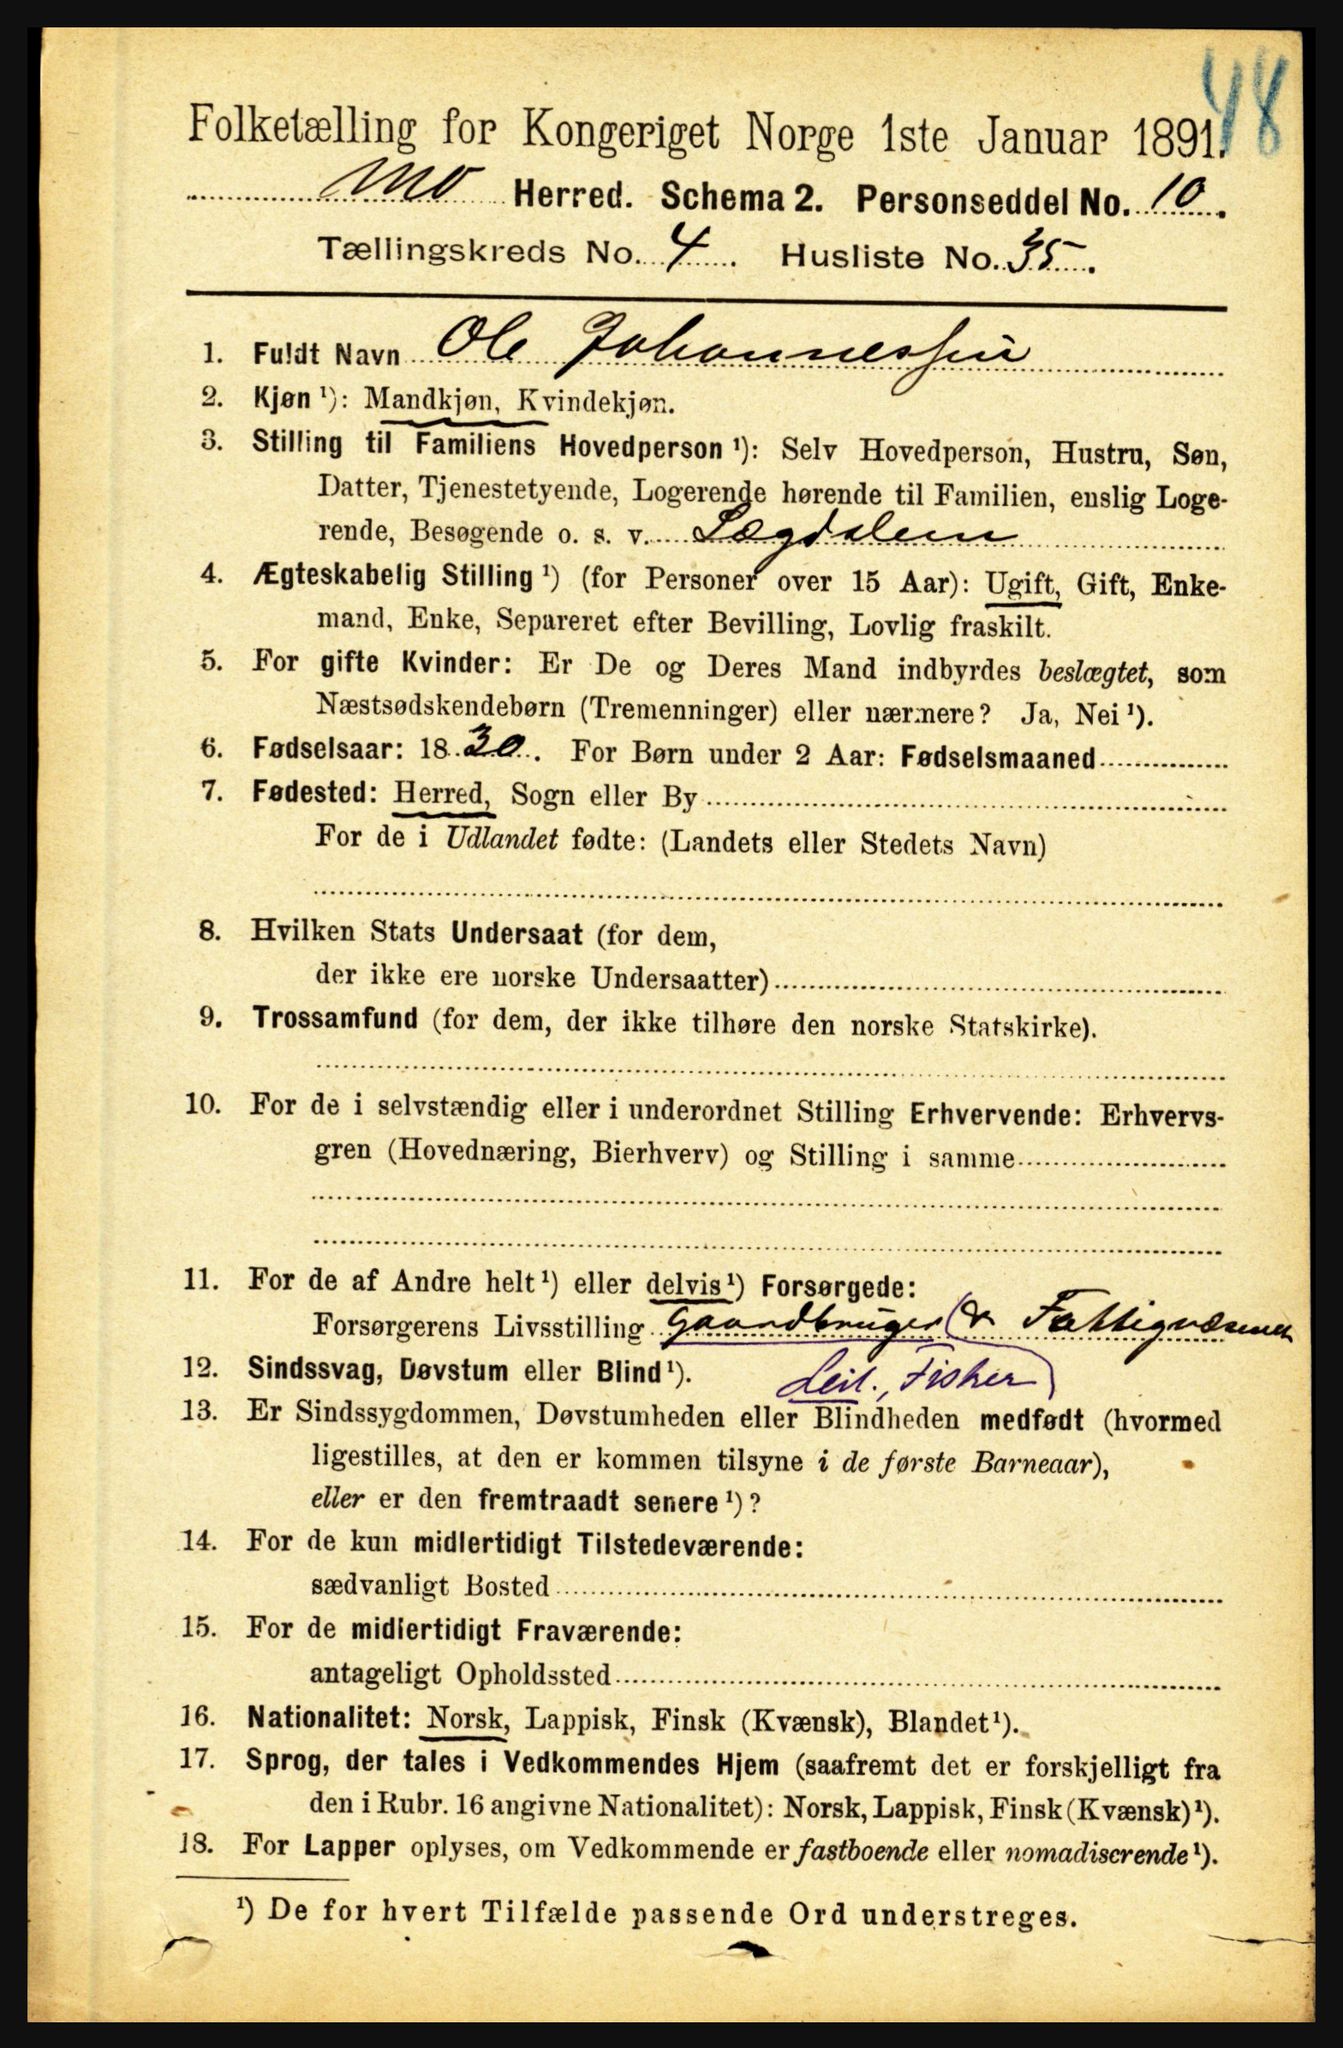 48
Folketælling for Kongeriget Norge 1ste Januar 1891.
Mo Herred. Schema 2. Personseddel No. 10.
Tællingskreds No. 4. Husliste No. 35.
1. Fuldt Navn Ole Johannessen
2. Kjøn ¹): Mandkjøn, Kvindekjøn.
3. Stilling til Familiens Hovedperson ¹): Selv Hovedperson, Hustru, Søn,
Datter, Tjenestetyende, Logerende hørende til Familien, enslig Loge-
rende, Besøgende o. s. v. Lægdslem
4. Ægteskabelig Stilling ¹) (for Personer over 15 Aar): Ugift, Gift, Enke-
mand, Enke, Separeret efter Bevilling, Lovlig fraskilt.
5. For gifte Kvinder: Er De og Deres Mand indbyrdes beslægtet, som
Næstsødskendebørn (Tremenninger) eller nærmere? Ja, Nei ¹).
6. Fødselsaar: 1830. For Børn under 2 Aar: Fødselsmaaned
7. Fødested: Herred, Sogn eller By
For de i Udlandet fødte: (Landets eller Stedets Navn)
8. Hvilken Stats Undersaat (for dem,
der ikke ere norske Undersaatter)
9. Trossamfund (for dem, der ikke tilhøre den norske Statskirke).
10. For de i selvstændig eller i underordnet Stilling Erhvervende: Erhvervs-
gren (Hovednæring, Bierhverv) og Stilling i samme
11. For de af Andre helt ¹) eller delvis ¹) Forsørgede:
Forsørgerens Livsstilling Gaardbruger & Fattigvæsenet
12. Sindssvag, Døvstum eller Blind ¹). Leil., Fisker
13. Er Sindssygdommen, Døvstumheden eller Blindheden medfødt (hvormed
ligestilles, at den er kommen tilsyne i de første Barneaar),
eller er den fremtraadt senere ¹)?
14. For de kun midlertidigt Tilstedeværende:
sædvanligt Bosted
15. For de midlertidigt Fraværende:
antageligt Opholdssted
16. Nationalitet: Norsk, Lappisk, Finsk (Kvænsk), Blandet ¹).
17. Sprog, der tales i Vedkommendes Hjem (saafremt det er forskjelligt fra
den i Rubr. 16 angivne Nationalitet): Norsk, Lappisk, Finsk (Kvænsk) ¹).
18. For Lapper oplyses, om Vedkommende er fastboende eller nomadiserende ¹).
¹) De for hvert Tilfælde passende Ord understreges.